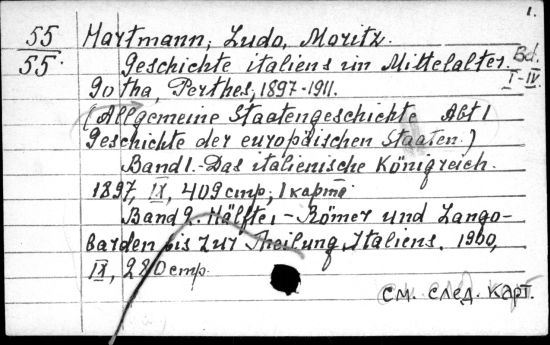 1.
55 Hartmann, Ludo, Moritz.
55. Geschichte italiens im Mittelalter. Bd. I-IV.
Gotha, Perthes, 1897-1911.
(Allgemeine Staatengeschichte Abt I
Geschichte der europäischen Staaten.)
Band 1.-Das italienische Königreich.
1897, IX, 409 стр; 1 карта
Band 2. Hälfte 1 - Römer und Lango-
barden bis zur Theilung Italiens. 1900,
IX, 280 стр.
см. след. карт.